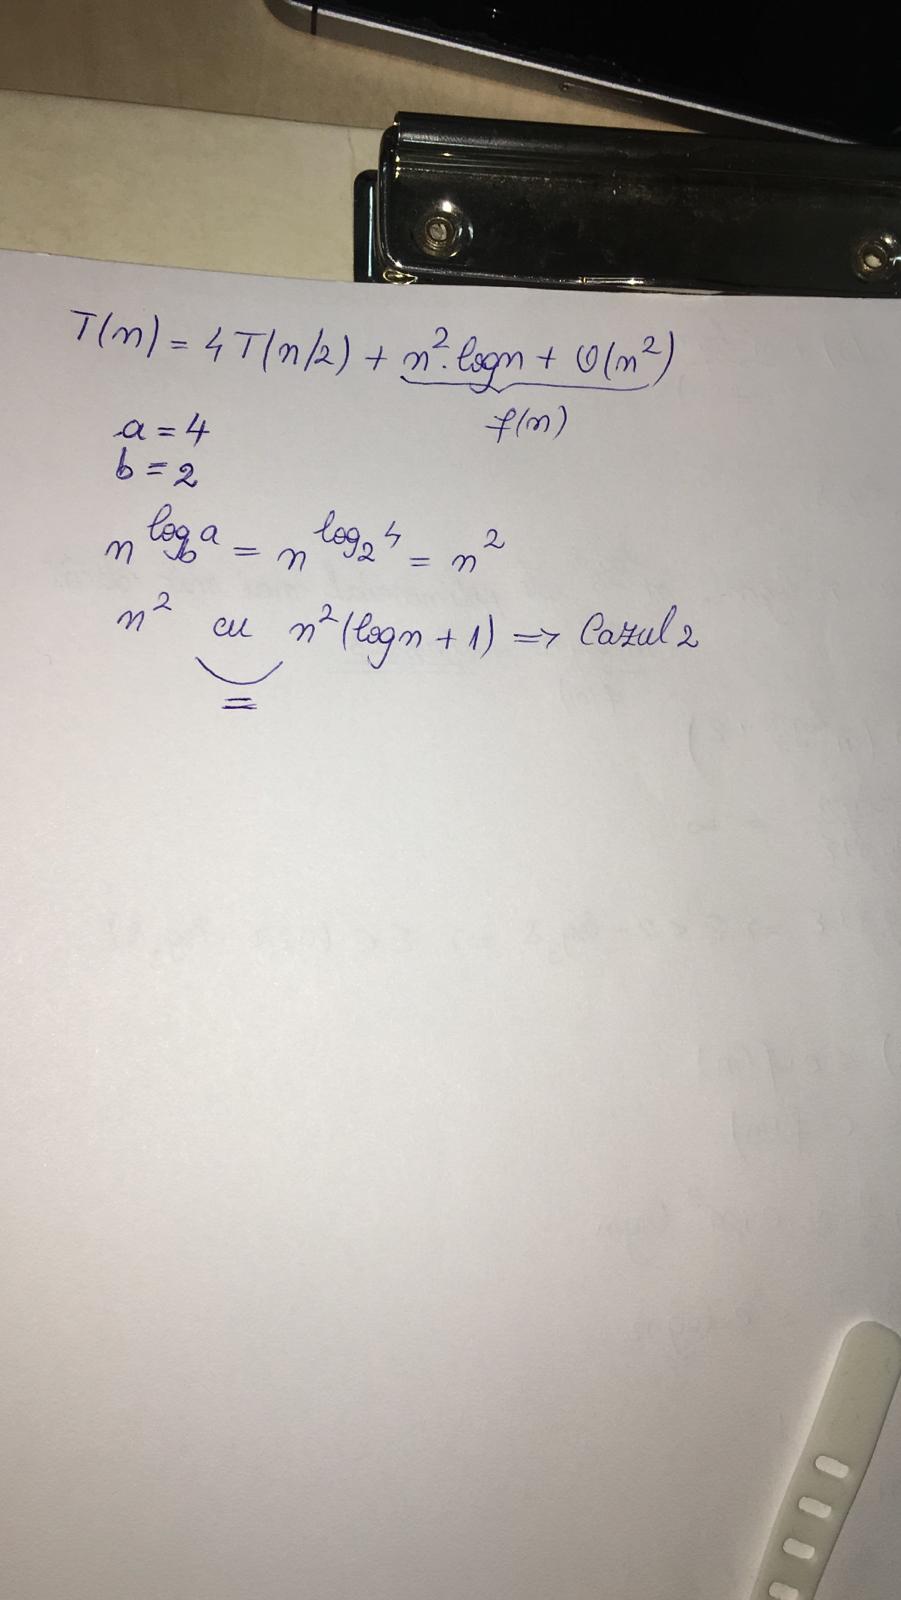 T(n) = 4T(n/2) + n². logn + O(n²)
f(n)
a = 4
b = 2
n^log_b a = n^log_2 4 = n²
n² cu n²(logn + 1) => Cazul 2
=